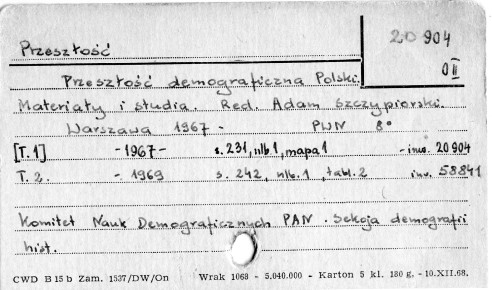 Przeszłość
20 904
O II
Przeszłość demograficzna Polski.
Materiały i studia. Red. Adam Szczypiorski.
Warszawa 1967 - PWN 8°
[T.1] - 1967 - s. 231, nlb 1, mapa 1 - inw. 20904
T. 2. - 1969 s. 242, nlb. 1, tabl. 2 inw. 58841
Komitet Nauk Demograficznych PAN. Sekcja demografii
hist.
CWD B 15 b Zam. 1537/DW/On Wrak 1068 - 5.040.000 - Karton 5 kl. 180 g. - 10.XII.68.